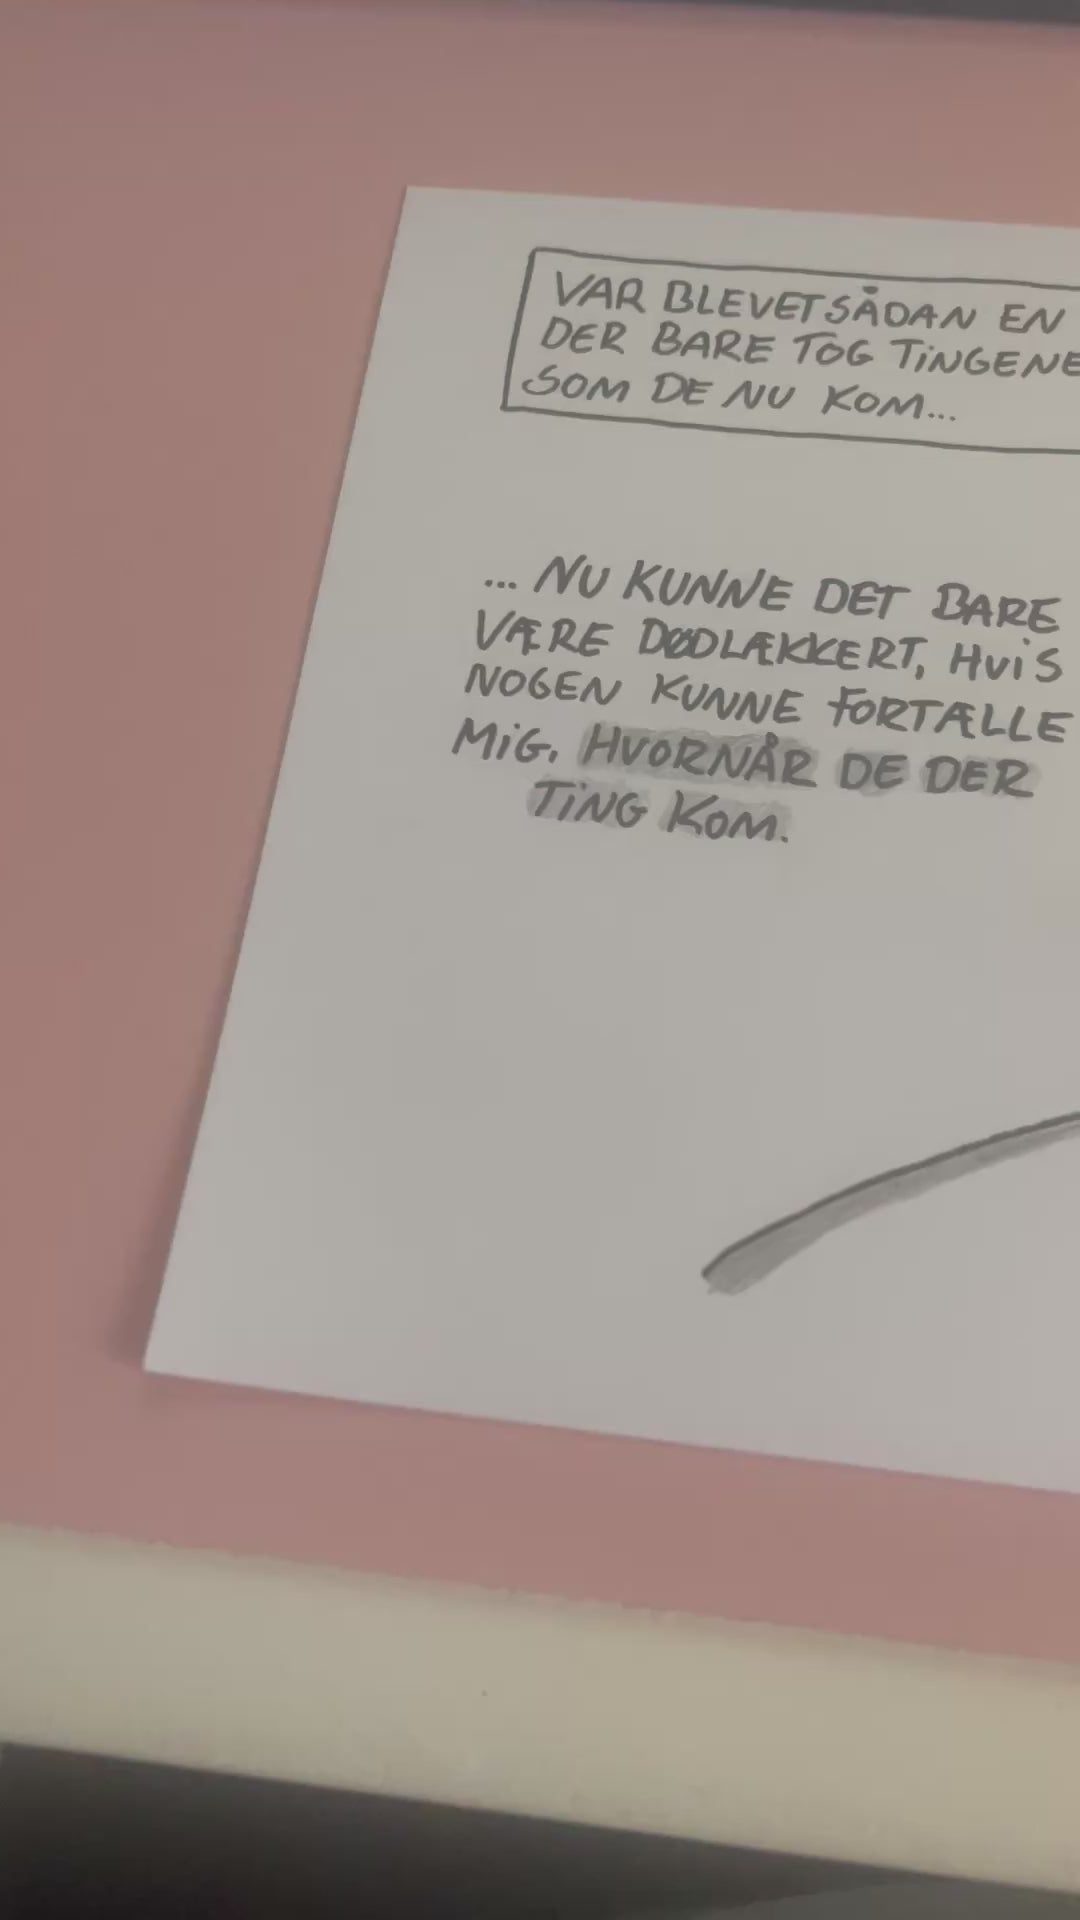 VAR BLEVET SÅDAN EN
DER BARE TOG TINGENE
SOM DE NU KOM...
... NU KUNNE DET BARE
VÆRE DØDLÆKKERT, HVIS
NOGEN KUNNE FORTÆLLE
MIG, HVORNÅR DE DER
TING KOM.